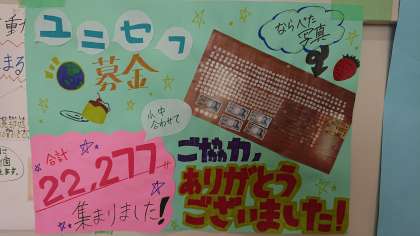 ユニセフ
募金
ならべた
写真
小中
合わせて
合計
22,277
集まりました!
ご協力、
ありがとう
ございました!